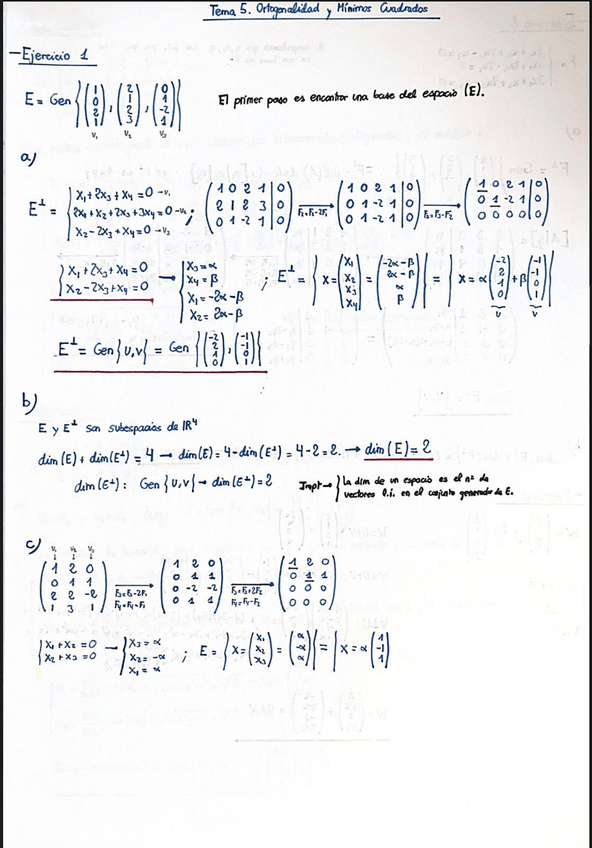 Tema 5. Ortogonalidad y Mínimos Cuadrados
- Ejercicio 1
E = Gen { (1 0 2 1), (2 1 2 3), (0 1 -2 1) } El primer paso es encontrar una base del espacio (E).
V₁ V₂ V₃
a)
E^⊥ = { x₁+2x₃+x₄=0 → v₁
2x₁+x₂+2x₃+3x₄=0 → v₂
x₂-2x₃+x₄=0 → v₃ ;
( 1 0 2 1 | 0
2 1 2 3 | 0
0 1 -2 1 | 0 )
F₂=F₂-2F₁
( 1 0 2 1 | 0
0 1 -2 1 | 0
0 1 -2 1 | 0 )
F₃=F₃-F₂
( 1 0 2 1 | 0
0 1 -2 1 | 0
0 0 0 0 | 0 )
{ x₁+2x₃+x₄=0
x₂-2x₃+x₄=0
→ { x₃=α
x₄=β
x₁=-2α-β
x₂=2α-β
; E^⊥ = { X = (x₁ x₂ x₃ x₄) = (-2α-β 2α-β α β) } = { X = α (-2 2 1 0) + β (-1 -1 0 1) }
u v
E^⊥ = Gen {u,v} = Gen { (-2 2 1 0), (-1 -1 0 1) }
b)
E y E^⊥ son subespacios de IR⁴
dim(E)+dim(E^⊥) = 4 → dim(E) = 4-dim(E^⊥) = 4-2=2. → dim(E)=2
dim(E^⊥): Gen {u,v} → dim(E^⊥)=2 Impt → { La dim de un espacio es el nº de
vectores l.i. en el conjunto generador de E.
c)
V₁ V₂ V₃
( 1 2 0
0 1 1
2 2 -2
1 3 1 )
F₃=F₃-2F₁
F₄=F₄-F₁
( 1 2 0
0 1 1
0 -2 -2
0 1 1 )
F₃=F₃+2F₂
F₄=F₄-F₂
( 1 2 0
0 1 1
0 0 0
0 0 0 )
{ x₁+x₂=0
x₂+x₃=0
→ { x₃=α
x₂=-α
x₁=α
; E = { X = (x₁ x₂ x₃) = (α -α α) } = { X = α (1 -1 1)